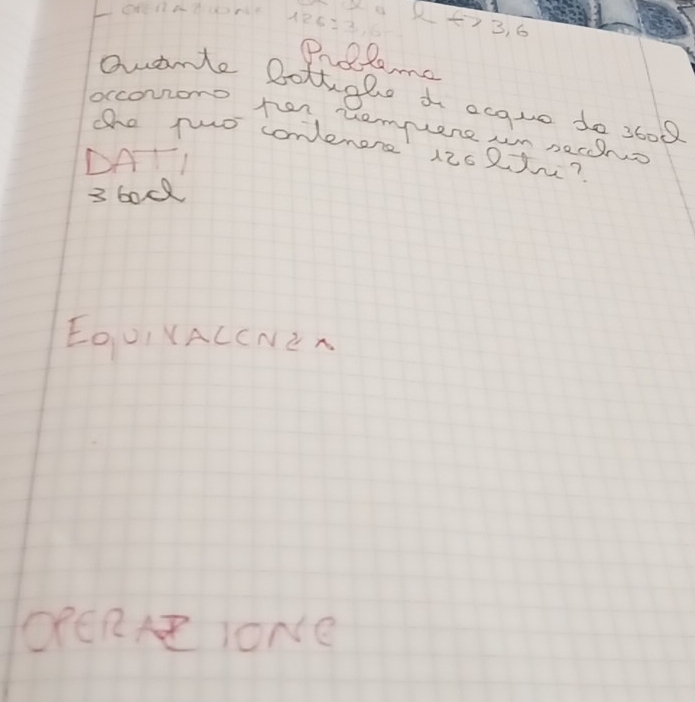 - OPERAZIONE 126:3,6 l → 3,6
Problema
Quante bottiglie di acqua da 360cl
occorrono per riempiere un secchio
che può contenere 126 litri?
DATI
360cl
EQUIVALENZA
OPERAZIONE